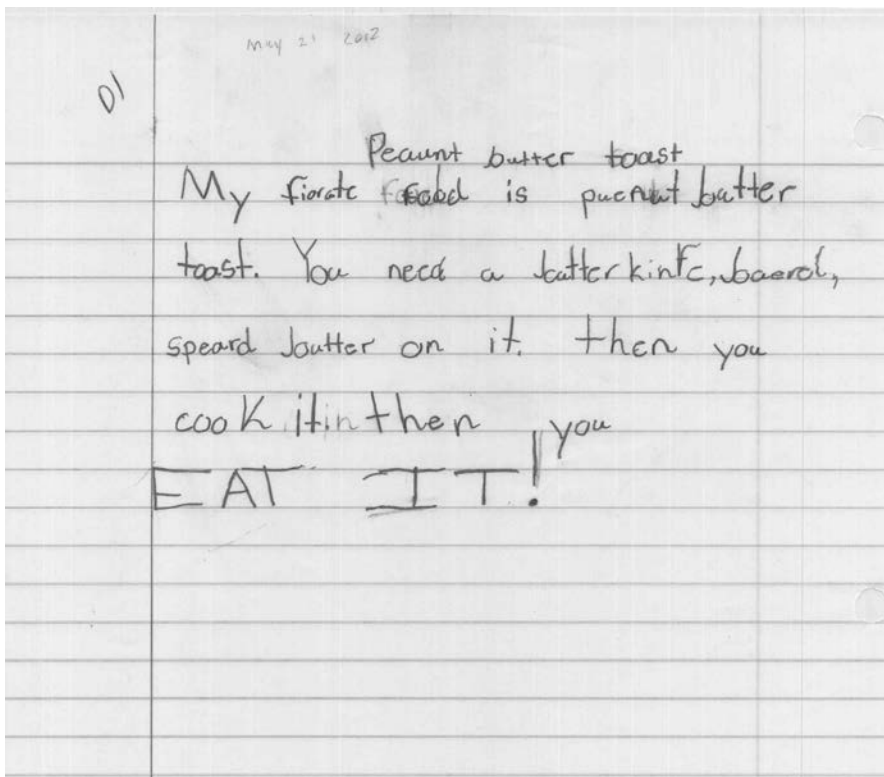 May 21 2012
D1
Peaunt butter toast
My fiorate food is puenut butter
toast. You need a butter kinfe, baerd,
speard butter on it. then you
cook it in then you
EAT IT!